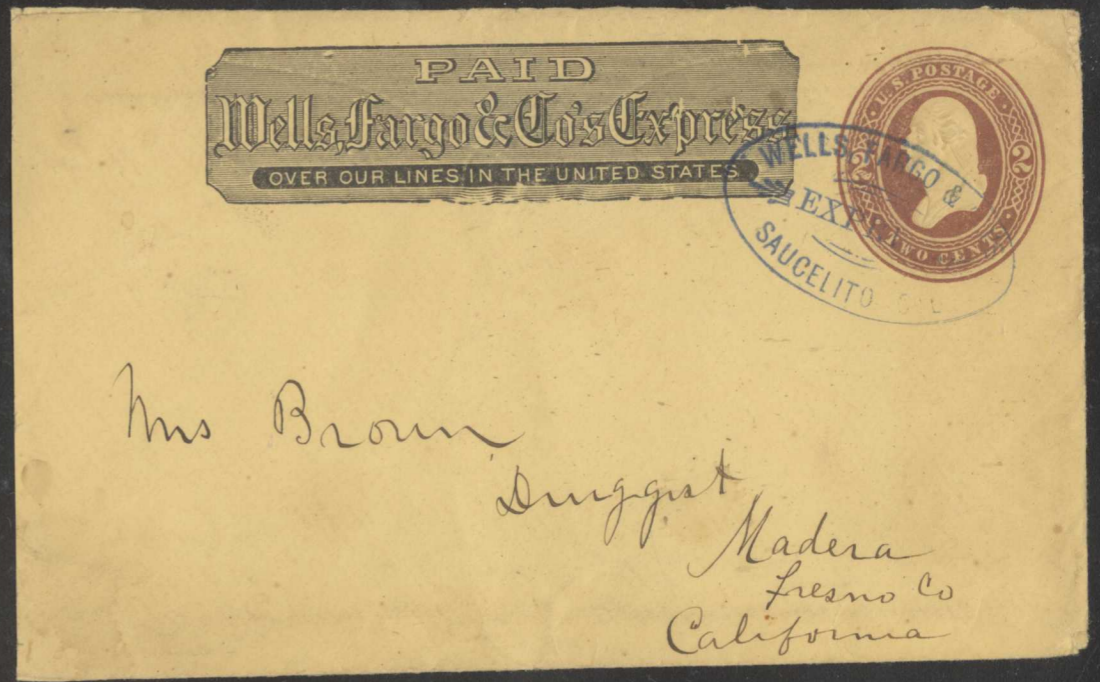 PAID
Wells, Fargo & Co's Express
OVER OUR LINES IN THE UNITED STATES
U.S. POSTAGE
2 2
TWO CENTS
WELLS, FARGO &
SAUCELITO
Mrs Brown
Druggist
Madera
Fresno Co
California